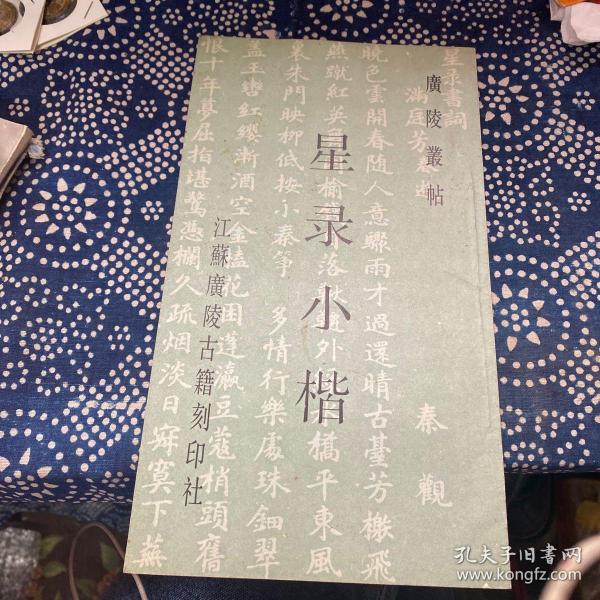 廣陵叢帖
星录小楷
江蘇廣陵古籍刻印社
星录書詞
滿庭芳
秦觀
晓色雲開春随人意驟雨才過還晴古臺芳榭飛
燕蹴紅英
榆
落
外
橋平東風
裏朱門映柳低按小秦箏
多情行樂處珠鈿翠
蓋玉轡紅纓漸酒空金榼花困蓬瀛豆蔻梢頭舊
恨十年夢屈指堪驚憑欄久疏烟淡日寂寞下蕪
孔夫子旧书网
www.kongfz.com